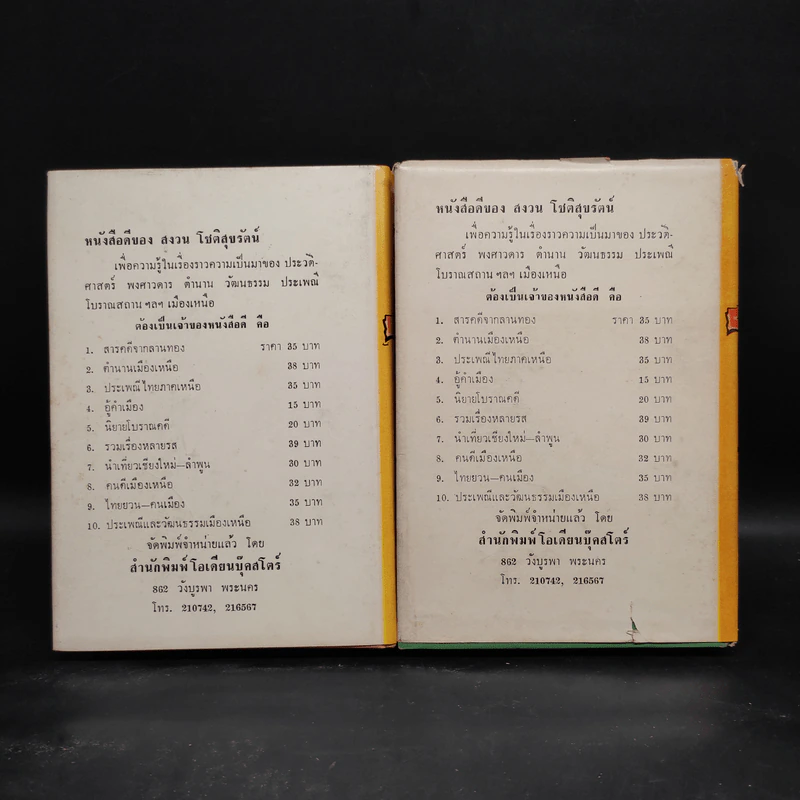 หนังสือดีของ สงวน โชติสุขรัตน์
เพื่อความรู้ในเรื่องราวความเป็นมาของ ประวัติ-
ศาสตร์ พงศาวดาร ตำนาน วัฒนธรรม ประเพณี
โบราณสถาน ฯลฯ เมืองเหนือ
ต้องเป็นเจ้าของหนังสือดี คือ
1. สารคดีจากลานทอง ราคา 35 บาท
2. ตำนานเมืองเหนือ 38 บาท
3. ประเพณีไทยภาคเหนือ 35 บาท
4. อู้คำเมือง 15 บาท
5. นิยายโบราณคดี 20 บาท
6. รวมเรื่องหลายรส 39 บาท
7. นำเที่ยวเชียงใหม่—ลำพูน 30 บาท
8. คนดีเมืองเหนือ 32 บาท
9. ไทยยวน—คนเมือง 35 บาท
10. ประเพณีและวัฒนธรรมเมืองเหนือ 38 บาท
จัดพิมพ์จำหน่ายแล้ว โดย
สำนักพิมพ์โอเดียนบุ๊คสโตร์
862 วังบูรพา พระนคร
โทร. 210742, 216567
หนังสือดีของ สงวน โชติสุขรัตน์
เพื่อความรู้ในเรื่องราวความเป็นมาของ ประวัติ-
ศาสตร์ พงศาวดาร ตำนาน วัฒนธรรม ประเพณี
โบราณสถาน ฯลฯ เมืองเหนือ
ต้องเป็นเจ้าของหนังสือดี คือ
1. สารคดีจากลานทอง ราคา 35 บาท
2. ตำนานเมืองเหนือ 38 บาท
3. ประเพณีไทยภาคเหนือ 35 บาท
4. อู้คำเมือง 15 บาท
5. นิยายโบราณคดี 20 บาท
6. รวมเรื่องหลายรส 39 บาท
7. นำเที่ยวเชียงใหม่—ลำพูน 30 บาท
8. คนดีเมืองเหนือ 32 บาท
9. ไทยยวน—คนเมือง 35 บาท
10. ประเพณีและวัฒนธรรมเมืองเหนือ 38 บาท
จัดพิมพ์จำหน่ายแล้ว โดย
สำนักพิมพ์โอเดียนบุ๊คสโตร์
862 วังบูรพา พระนคร
โทร. 210742, 216567